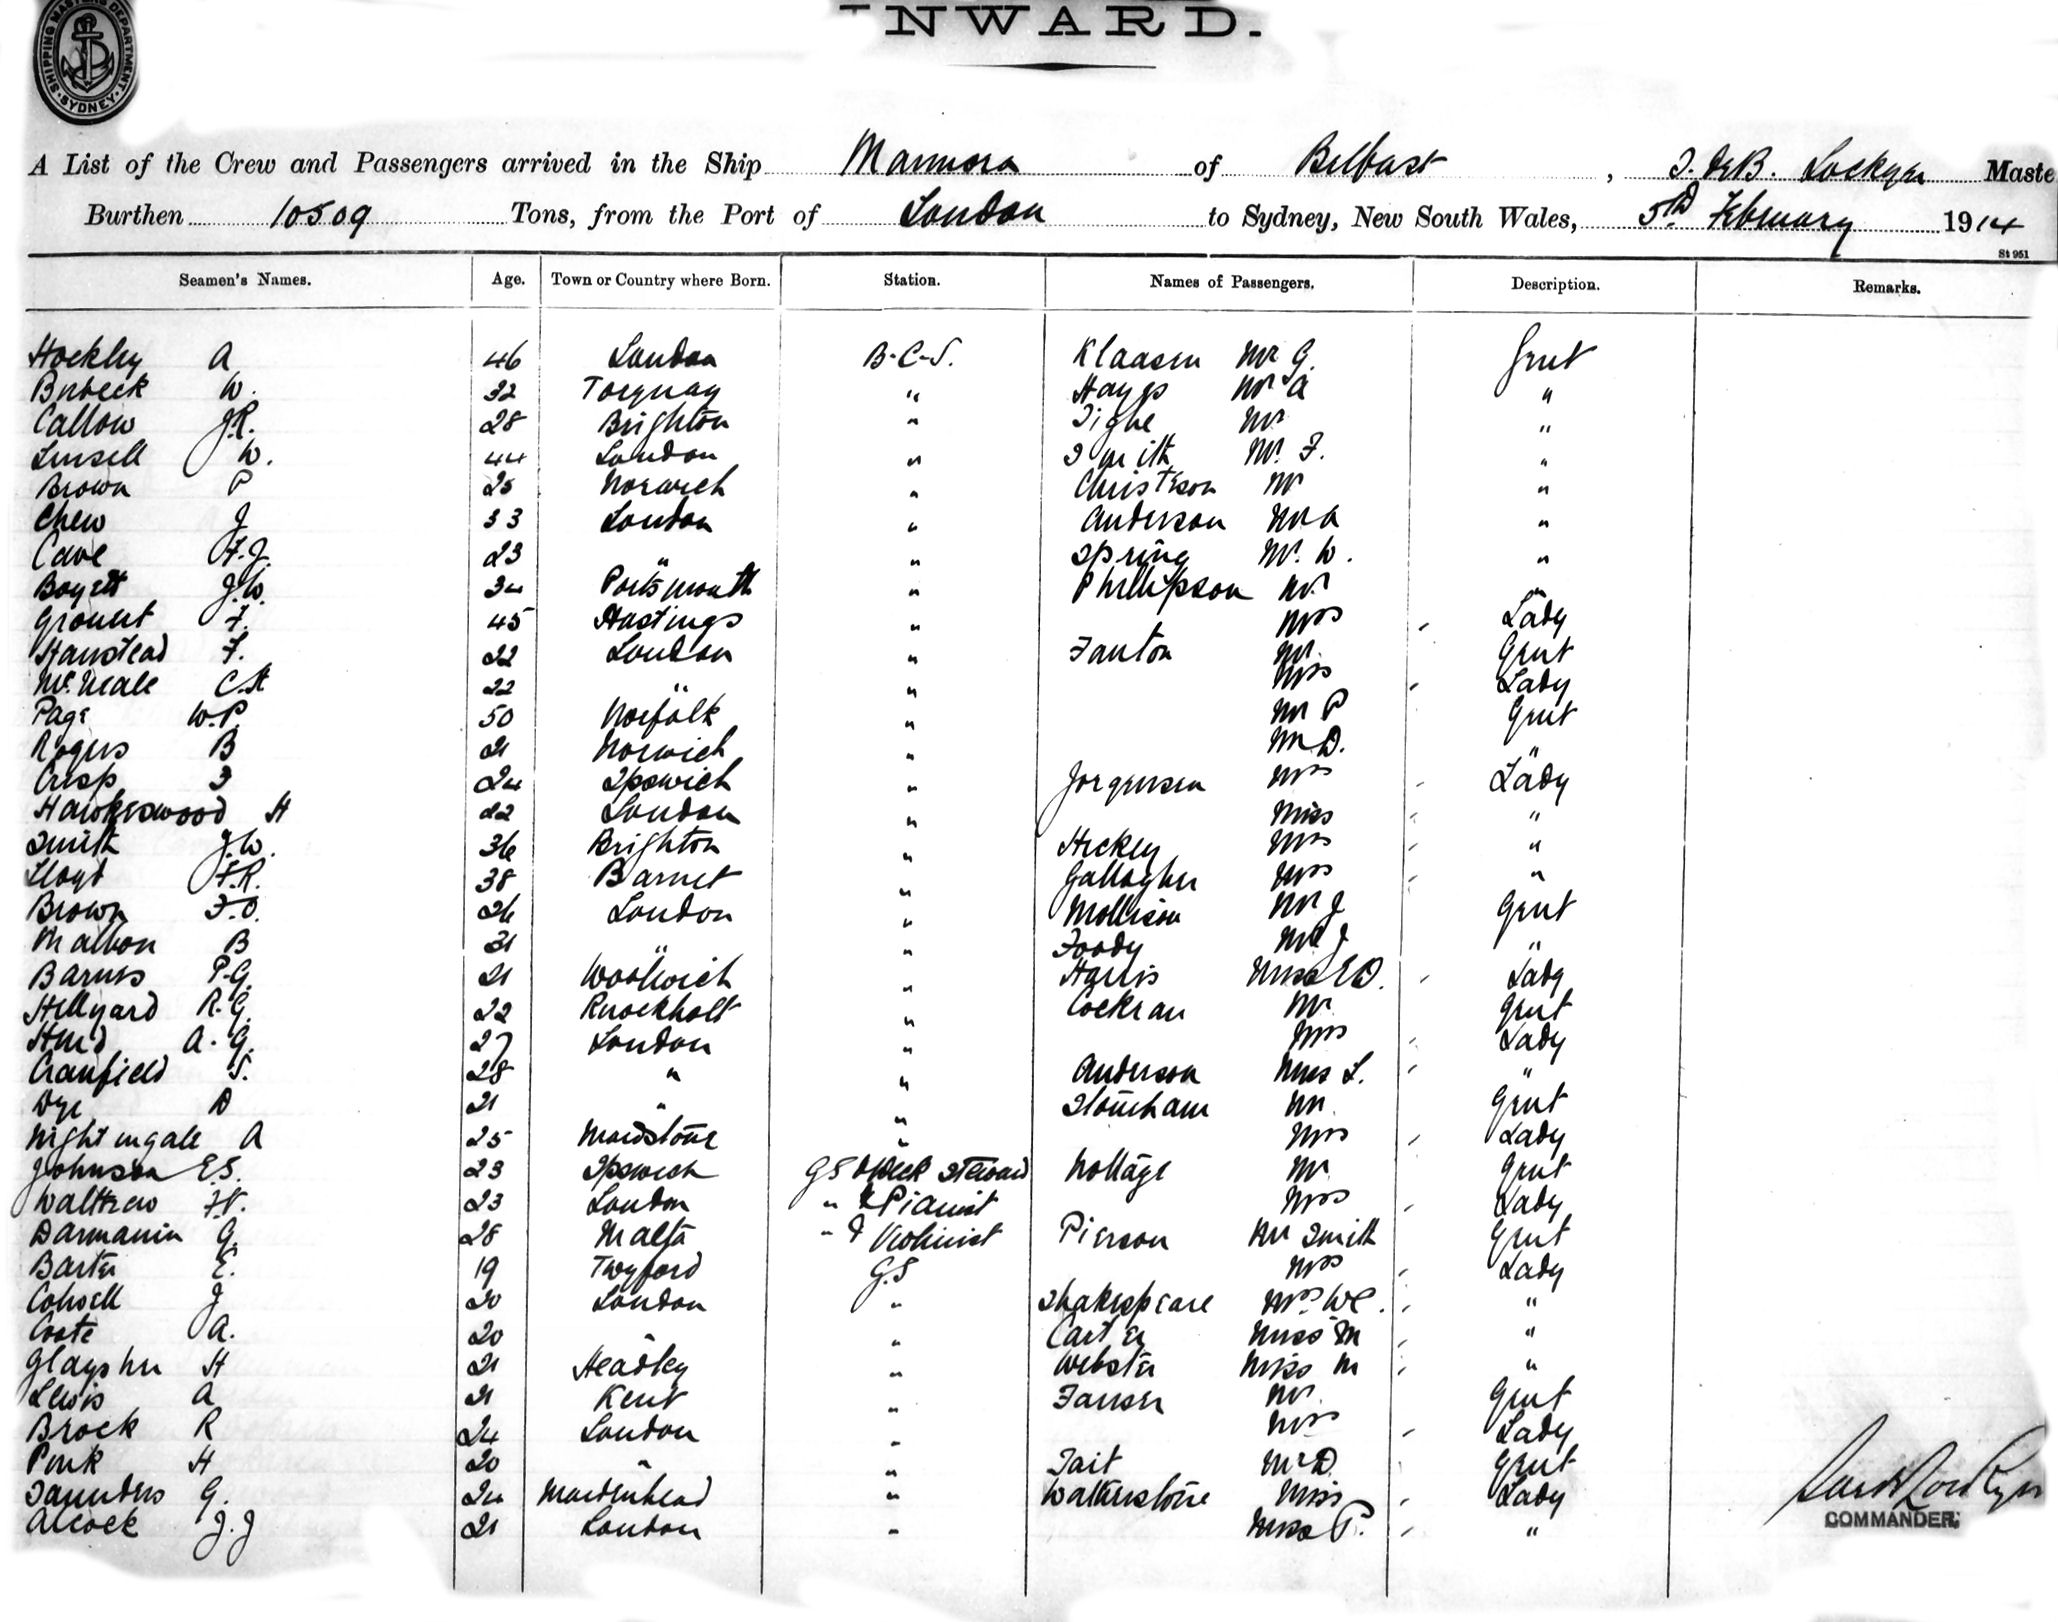 SHIPPING MASTERS DEPARTMENT SYDNEY
INWARD.
A List of the Crew and Passengers arrived in the Ship Marmora of Belfast, Lockyer Maste
Burthen 10509 Tons, from the Port of London to Sydney, New South Wales, 5th February 1914
St 951
Seamen's Names. Age. Town or Country where Born. Station. Names of Passengers. Description. Remarks.
Hockley A 46 London B.C.S. Klaasen Mr G. Gent
Birbeck W. 32 Torquay " Hayes Mr A "
Callow J.R. 28 Brighton " Tighe Mr "
Linsell W. 44 London " Smith Mr. F. "
Brown P 25 Norwich " Christeson Mr "
Chew J 33 London " Anderson Mr A "
Cave F.J. 23 " " Spring Mr. W. "
Boyett J.W. 34 Portsmouth " Phillipson Mr. "
F. 45 Hastings " Mrs Lady
Hanstead F. 22 London " Fanton Mr. Gent
McNeale C.H 22 " " Mrs Lady
Page W.P. 50 Norfolk " Mr P Gent
Rogers B 21 Norwich " Mr D. "
Crisp 24 Ipswich " Jorgensen Mrs Lady
Hawkeswood H 22 London " Miss "
Smith J.W. 36 Brighton " Hickey Mrs "
Lloyd F.R. 38 Barnet " Gallagher Mrs "
Brown F.O. 26 London " Mollison Mr J Gent
Malbon B 31 " " Foody Mr J "
Barnes P.G. 21 Woolwich " Harris Miss E D. Lady
Hillyard R.G. 22 Knockholt " Cockran Mr Gent
Hurd A.G. 27 London " Mrs Lady
Cranfield S. 28 " " Anderson Miss L. "
Dye D 21 " " Stoneham Mr. Gent
Nightingale A 25 Maidstone " Mrs Lady
Johnson E.S. 23 Ipswich G S & Deck Steward Nottage Mr Gent
Walthew F.V. 23 London " & Pianist Mrs Lady
Darmanin G. 28 Malta " & Violinist Pierson Mr Smith Gent
Barter E. 19 Twyford G.S Mrs Lady
Colwell J 20 London " Shakespeare Mrs W C. "
Coote A. 20 " " Carter Miss M "
Glaysher H 21 Headley " Webster Miss M "
Lewis A 21 Kent " Mr Gent
Brock R 24 London " Mrs Lady
Pink H 20 " " Tait Mr D. Gent
Saunders G. 24 Maidenhead " Watherstone Miss Lady
Alcock J.J 21 London " Miss P. "
COMMANDER.